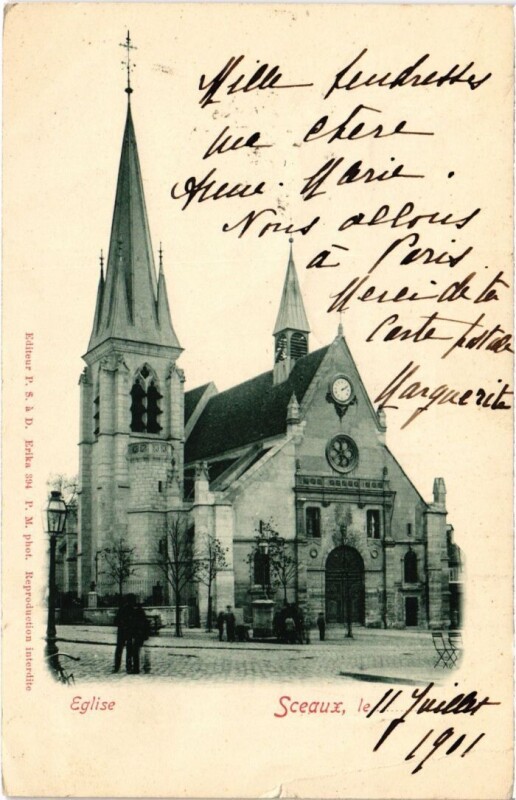 Mille tendresses
ma chère
Anne-Marie.
Nous allons
à Paris
Merci de ta
Carte postale
Marguerite
Editeur P. S. à D. Erika 394 P. M. phot. Reproduction interdite
Eglise
Sceaux, le 11 Juillet
1901